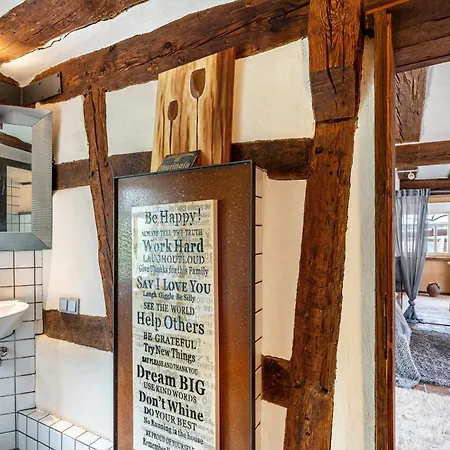 Be Happy!
ALWAYS TELL THE TRUTH
Work Hard
LAUGH OUT LOUD
Give Thanks for this Family
SAY I LOVE YOU
Laugh, Giggle, Be Silly
SEE THE WORLD
Help Others
BE GRATEFUL
Try New Things
SAY PLEASE AND THANK YOU
Dream BIG
USE KIND WORDS
Don't Whine
DO YOUR BEST
No Running in the house
BE PROUD OF YOURSELF